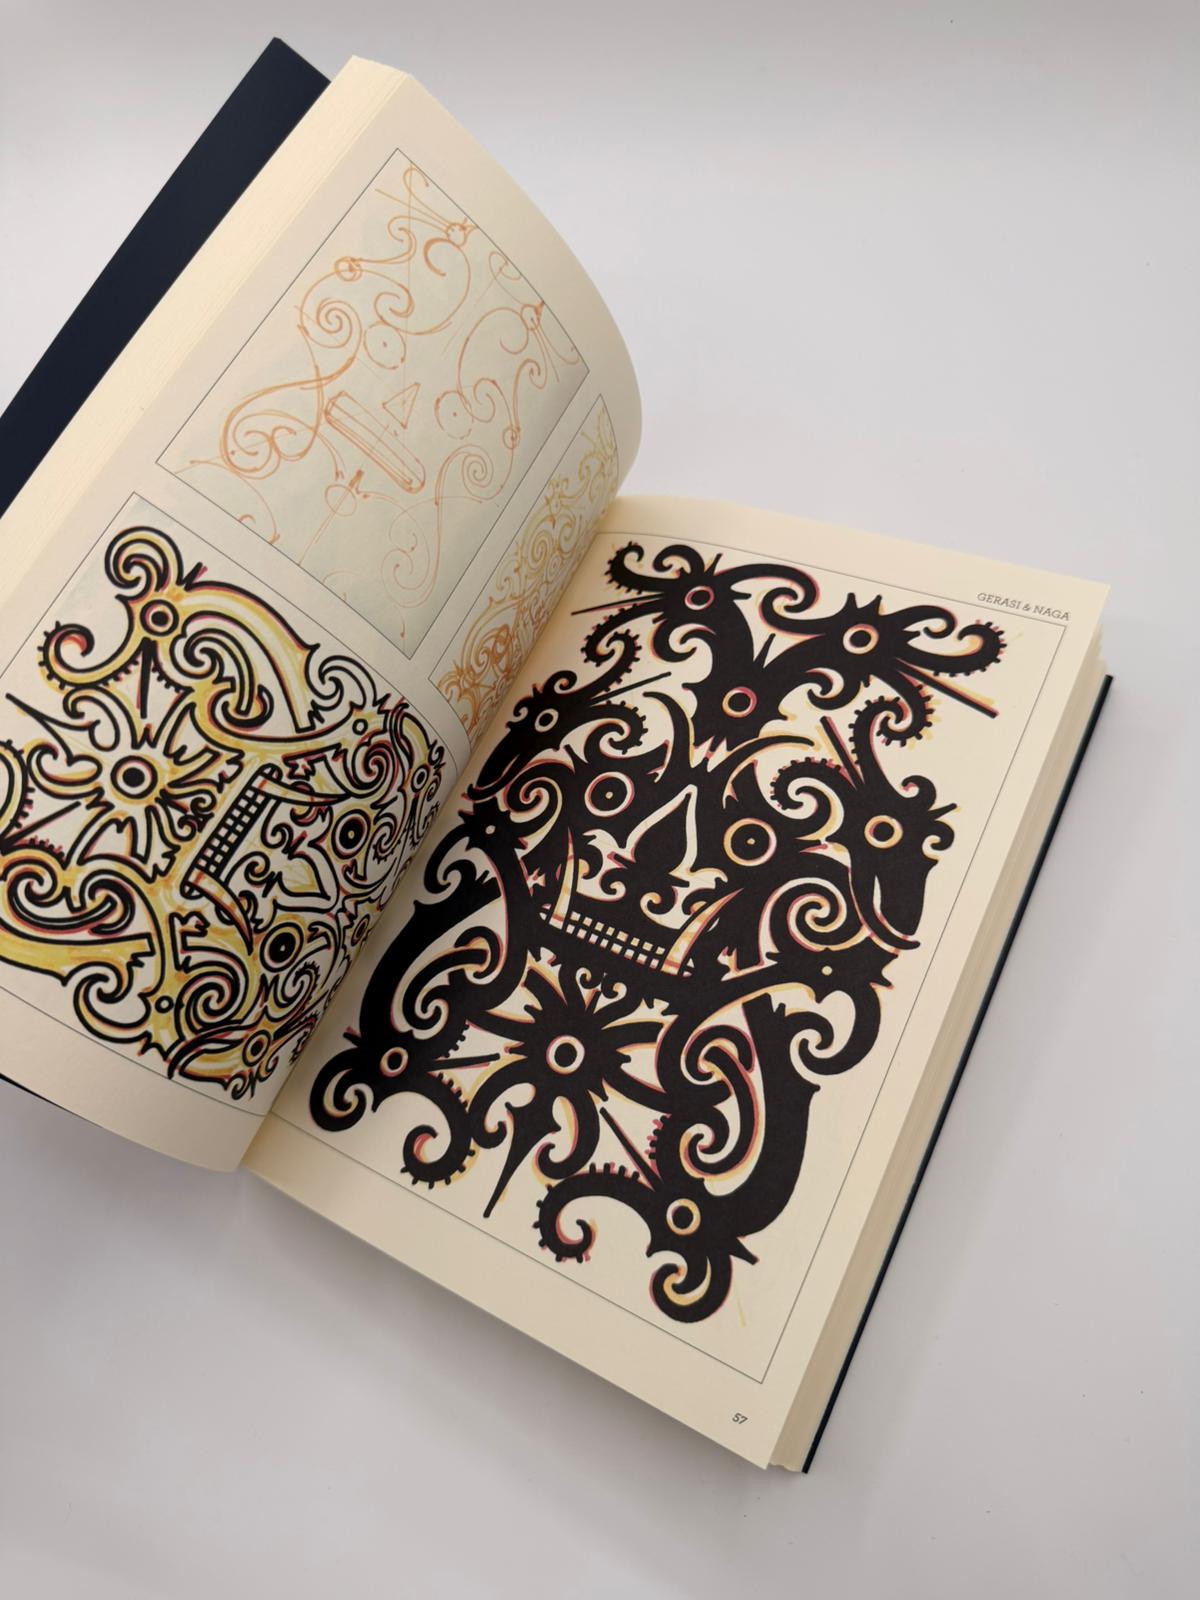 GERASI & NAGA
57